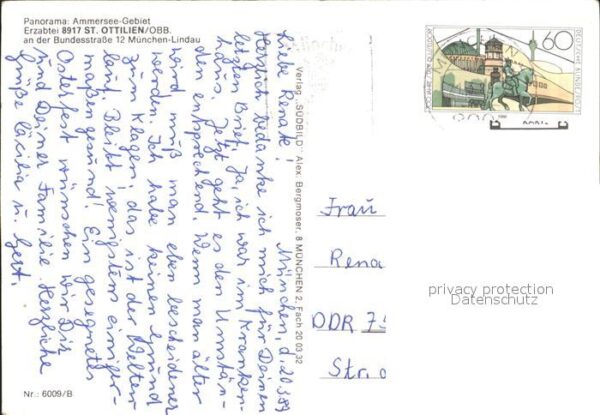 Panorama: Ammersee-Gebiet
Erzabtei 8917 ST. OTTILIEN/OBB.
an der Bundesstraße 12 München-Lindau
München, d. 20.3.89
Liebe Renate!
Herzlich bedanke ich mich für Deinen
letzten Brief. Ja, ich war im Kranken-
haus. Jetzt geht es den Umstän-
den entsprechend. Wenn man älter
wird muß man eben bescheidener
werden. Ich habe keinen Grund
zum Klagen, das ist der Welten-
lauf. Bleibt wenigstens einiger-
maßen gesund! Ein gesegnetes
Osterfest wünschen wir Dir
und Deiner Familie. Herzliche
Grüße Cäcilia u. Gert.
Verlag „SÜDBILD" Alex. Bergmoser, 8 MÜNCHEN 2, Fach 20 03 32
60
DEUTSCHE BUNDESPOST
Frau
Rena
DDR 75
Str.
privacy protection
Datenschutz
Nr.: 6009/B